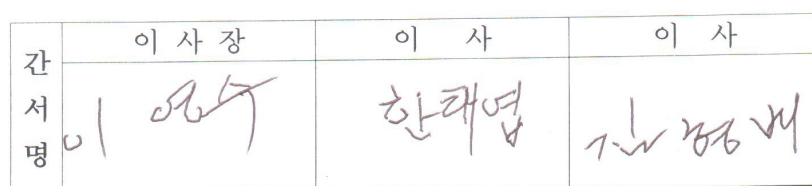 간서명
이 사 장 이 사 이 사
이 영수 한태엽 김형배